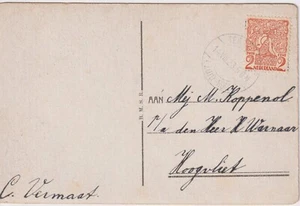 2
AAN Mej M. Koppenol
p/a den Heer K. Warnaar
Hoogvliet
C. Vermaat.